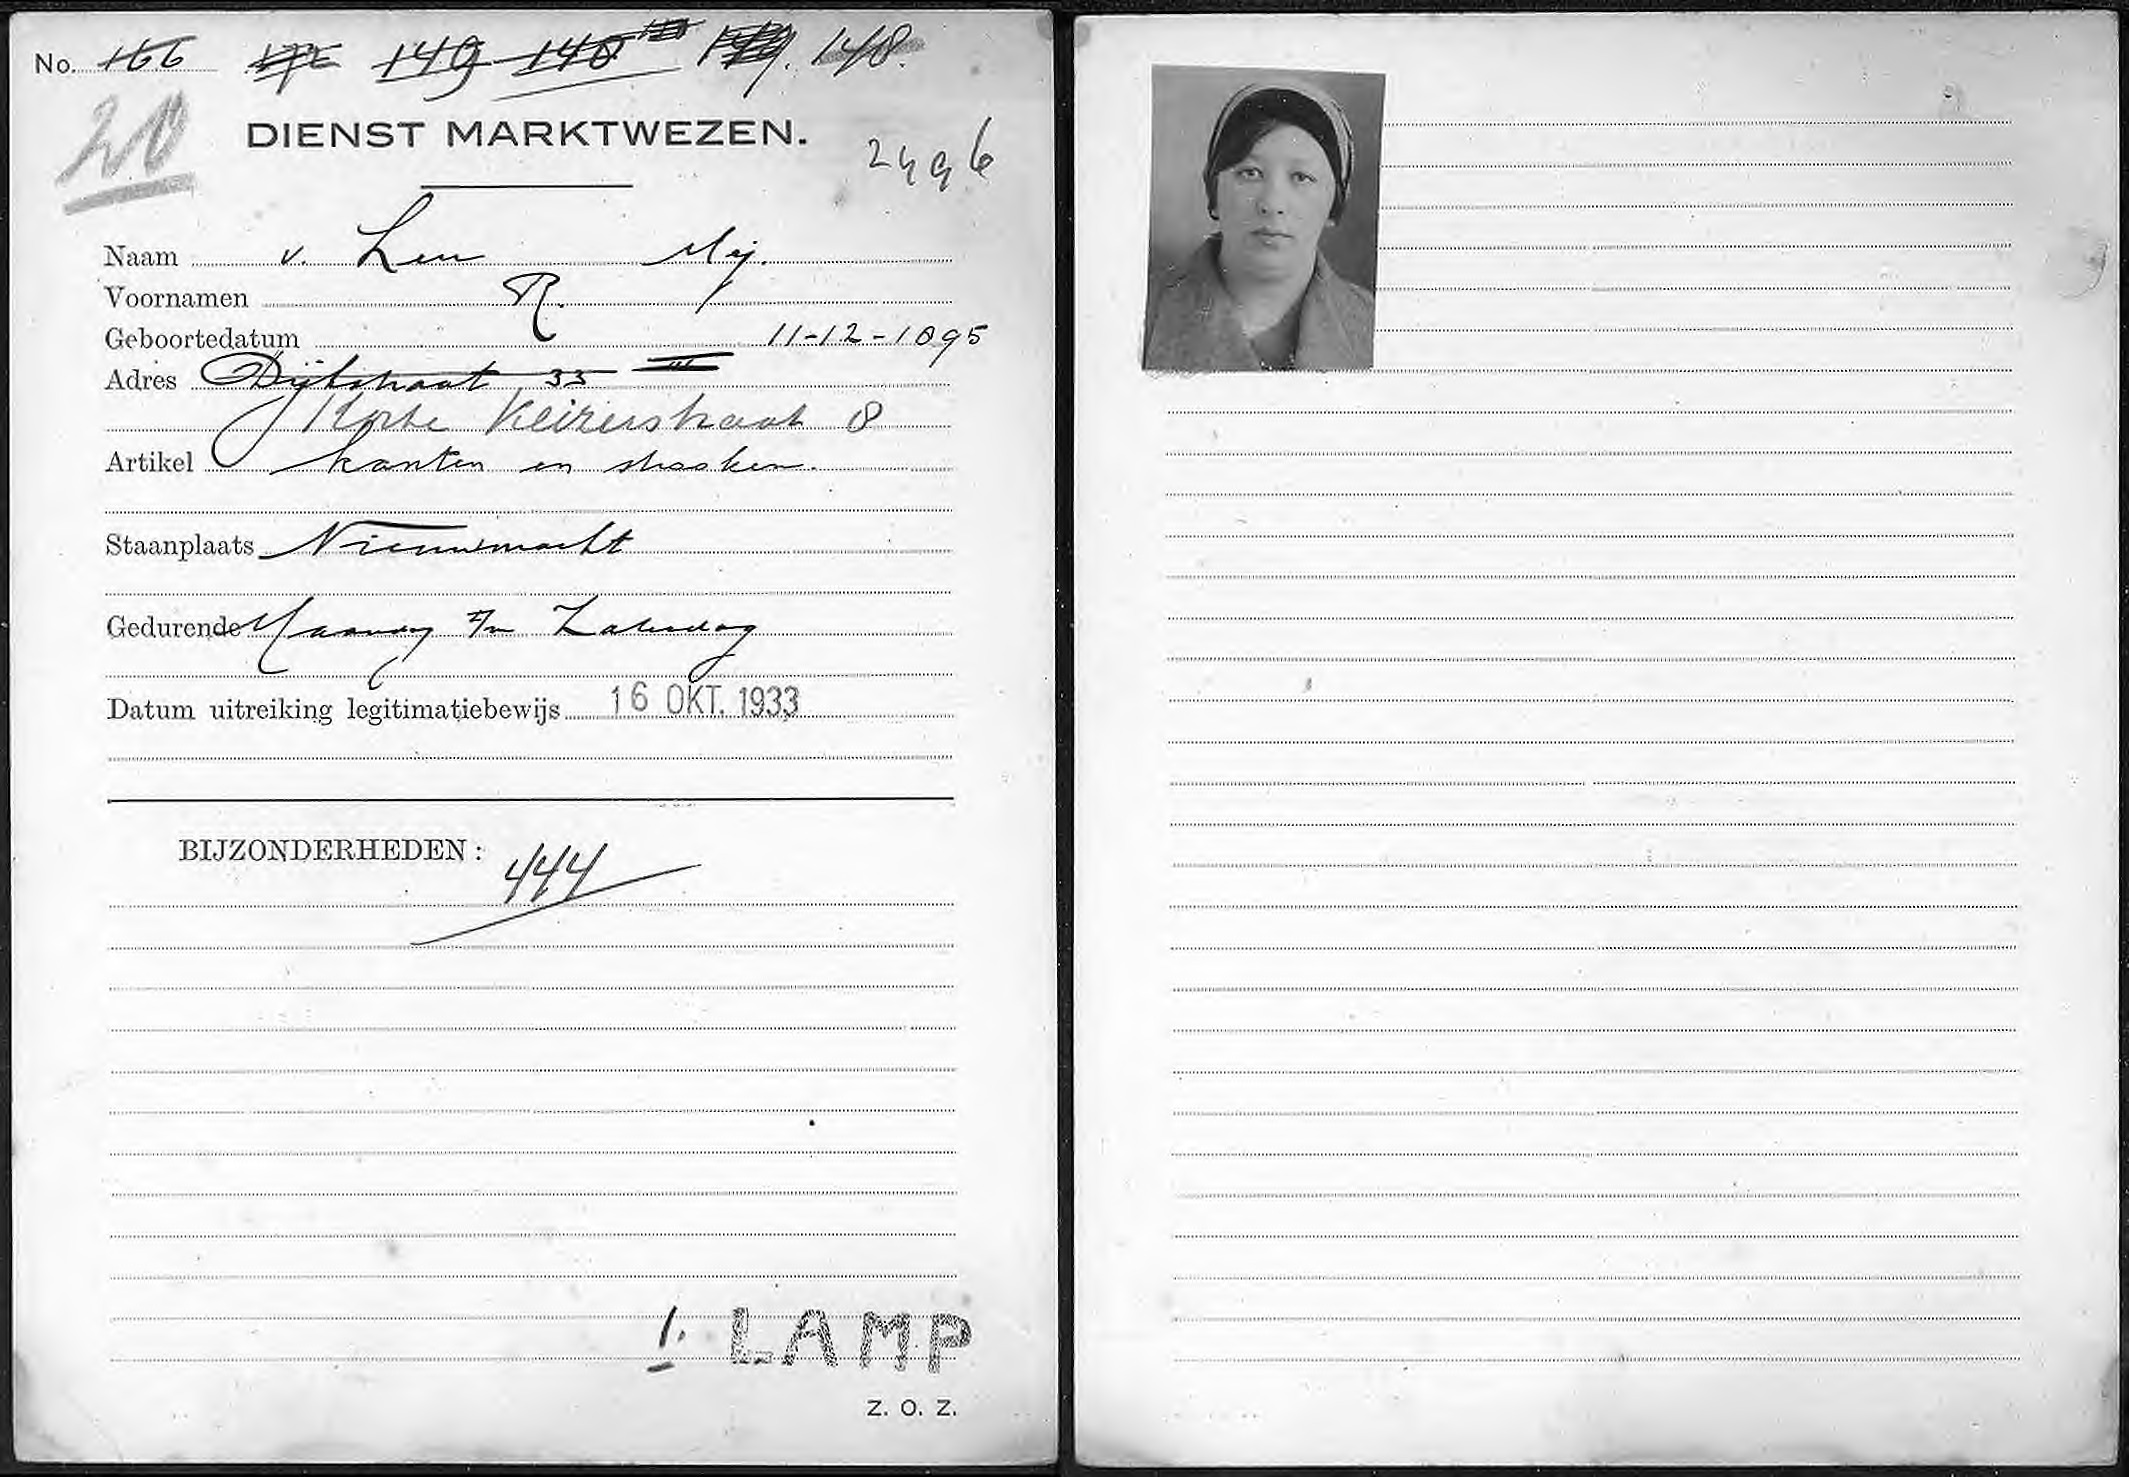 No. 166 149 140 148.
20
DIENST MARKTWEZEN.
2496
Naam v. Leu Mej.
Voornamen R.
Geboortedatum 11-12-1895
Adres Dijkstraat 33 III
Korte Keizerstraat 8
Artikel kanten en stroken.
Staanplaats Nieuwmarkt
Gedurende Maandag t/m Zaterdag
Datum uitreiking legitimatiebewijs 16 OKT. 1933
BIJZONDERHEDEN: 444
1. LAMP
Z. O. Z.